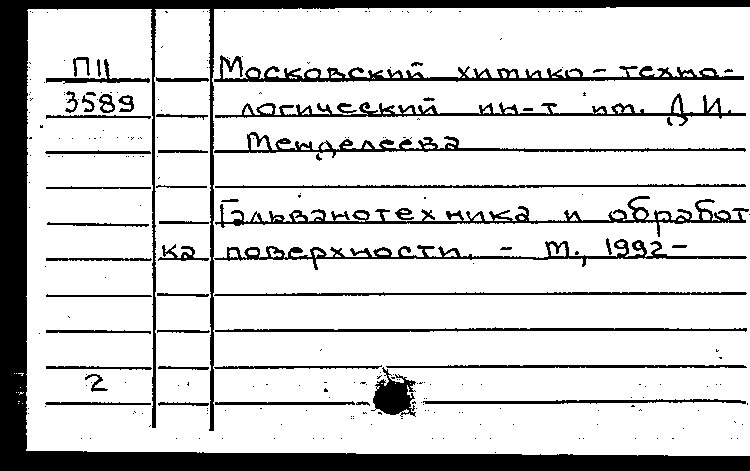 П11 Московский химико-техно-
3589 логический ин-т им. Д.И.
Менделеева
Гальванотехника и обработ
ка поверхности. - М., 1992-
2